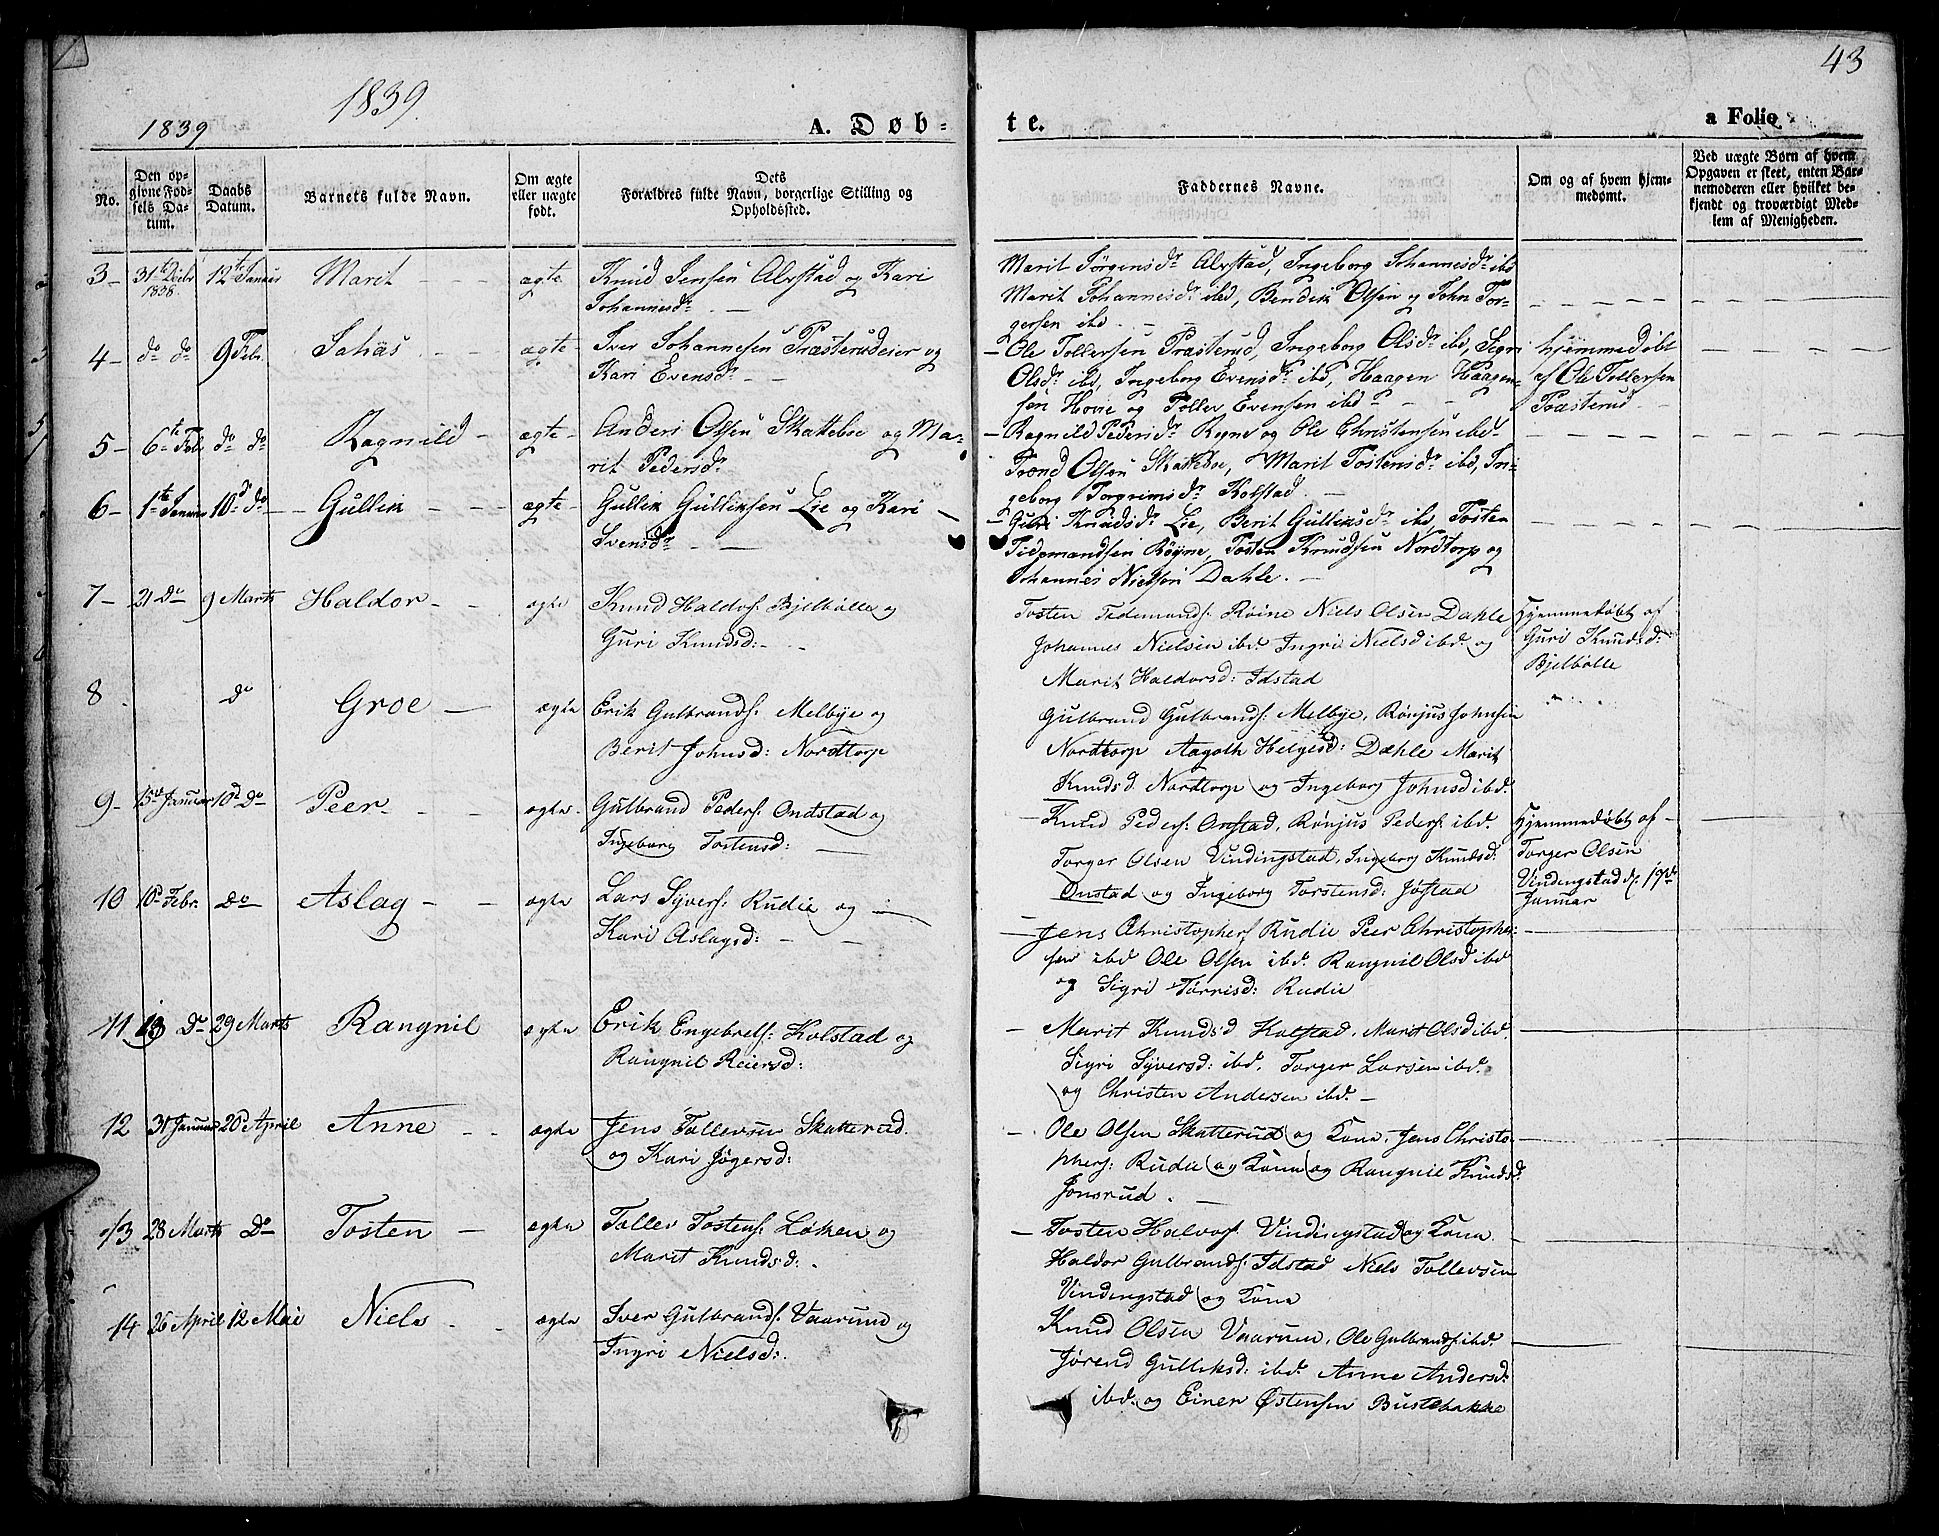 1839.
1839
43
A. Døb-
te.
a Folio
No.
Den op-
givne Fød-
sels Da-
tum.
Daabs
Datum.
Barnets fulde Navn.
Om ægte
eller uægte
født.
Dets
Forældres fulde Navn, borgerlige Stilling og
Opholdssted.
Faddernes Navne.
Om og af hvem hjem-
medømt.
Ved uægte Børn af hvem
Opgaven er skeet, enten Bar-
nemoderen eller hvilket be-
kjendt og troværdigt Med-
lem af Menigheden.
3 - 31te Decbr 1838. 12te Januar Marit - - - ægte
Knud Jensen Alvstad og Kari
Johannesdr. -
Marit Jörgensdr Alvstad, Ingeborg Johannesdr ibd
Marit Johannesdr ibd, Bendik Olsen og John Tor-
gersen ibd. - -
4 - do do 9 Febr. Johas - - - ægte -
Iver Johannesen Præsterudeier og
Kari Evensdr - -
- Ole Tollersen Præsterud, Ingeborg Olsdr ibd, Sigri
Olsdr ibd, Ingeborg Evensdr ibd, Haagen Haagen-
sen Hove og Toller Evensen ibd
hjemmedöbt
af Ole Tollersen
Præsterud - -
5 - 6te Feb do do Ragnild - ægte -
Anders Olsen Skattebøe og Ma-
rit Pedersdr
- Ragnild Pedersdr Røyne og Ole Christensen ibd -
Trond Olsen Skattebøe, Marit Tostensdr ibd, In-
geborg Torgrimsdr Kolstad. -
6 - 1te Januar 10de do - Gullik - - - ægte -
Gullik Gulliksen Lie og Kari -
Svensdr - -
- Guri Knudsdr Lie, Berit Gulliksdr ibd, Tosten
Tidemandsen Røyne, Tosten Knudsen Nordtorp og
Johannes Nielsen Dahle. -
7 - 21 Do 9 Marts Haldor - - ægte
Knud Haldorf. Bjelbølle og
Guri Knudsd: - -
Tosten Tedemandf. Røine Niels Olsen Dahle
Johannes Nielsen ibd. Ingri Nielsd ibd. og
Marit Haldorsd: Idstad
Hjemmedøbt af
Guri Knudsd:
Bjelbølle
8 . do Groe - ægte
Erik Gulbrandf: Melbye og
Berit Johnsd: Nordtorp
Gulbrand Gulbrandf: Melbye, Rönjus Johnsen
Nordtorp Aagoth Helgesd: Dæhle Marit
Knudsd. Nordtorp og Ingeborg Johnsd ibd.
9 - 15de Januar 10d Do Peer - - - ægte -
Gulbrand Pederf: Ondstad og
Ingeborg Tostensd: -
- Knud Pederf: Onstad, Rönjus Pederf: ibd.
Torger Olsen Vindingstad, Ingeborg Knudsd:
Onstad og Ingeborg Torstensd: Jøstad
Hjemmedøbt af -
Torger Olsen
Vindingstad d: 17de
Januar
10 10de Febr. Do Aslag - - ægte
Lars Syverf: Rudie og -
Kari Aslagsd: - -
- Jens Christopherf Rudie Peer Christopher-
sen ibd Ole Olsen ibd. Rangnil Olsd ibd
og Sigri Torrisd: Rudie
11 13 Do 29 Marts Rangnil ægte
Erik Engebretf: Kolstad og
Rangnil Reiersd:
- Marit Knudsd Kolstad, Marit Olsd ibd.
Sigri Syversd: ibd. Torger Larsen ibd.
og Christen Andersen ibd. -
12 31 Januar 20de April Anne - - ægte
Jens Tollevsen Skatterud
og Kari Jøgersd:
- Ole Olsen Skatterud og Kona, Jens Christo-
pherf: Rudie og Kona og Rangnil Knudsd.
Jonsrud. -
13 28 Marts Do Tosten - ægte
Tollev Tostenf: Løken og
Marit Knudsd: .
- Tosten Halvorf Vindingstad og Kona
Haldor Gulbrandf: Idstad Niels Tollevsen
Vindingstad og Kona
14 26 April 12 Mai Niels - - ægte
Iver Gulbrandf. Vaarum og
Ingri Nielsd:
Knud Olsen Vaarum, Ole Gulbrandf: ibd.
Jørend Gulliksd: ibd. Anne Andersd.
ibd. og Einer Østensen Bustebakke